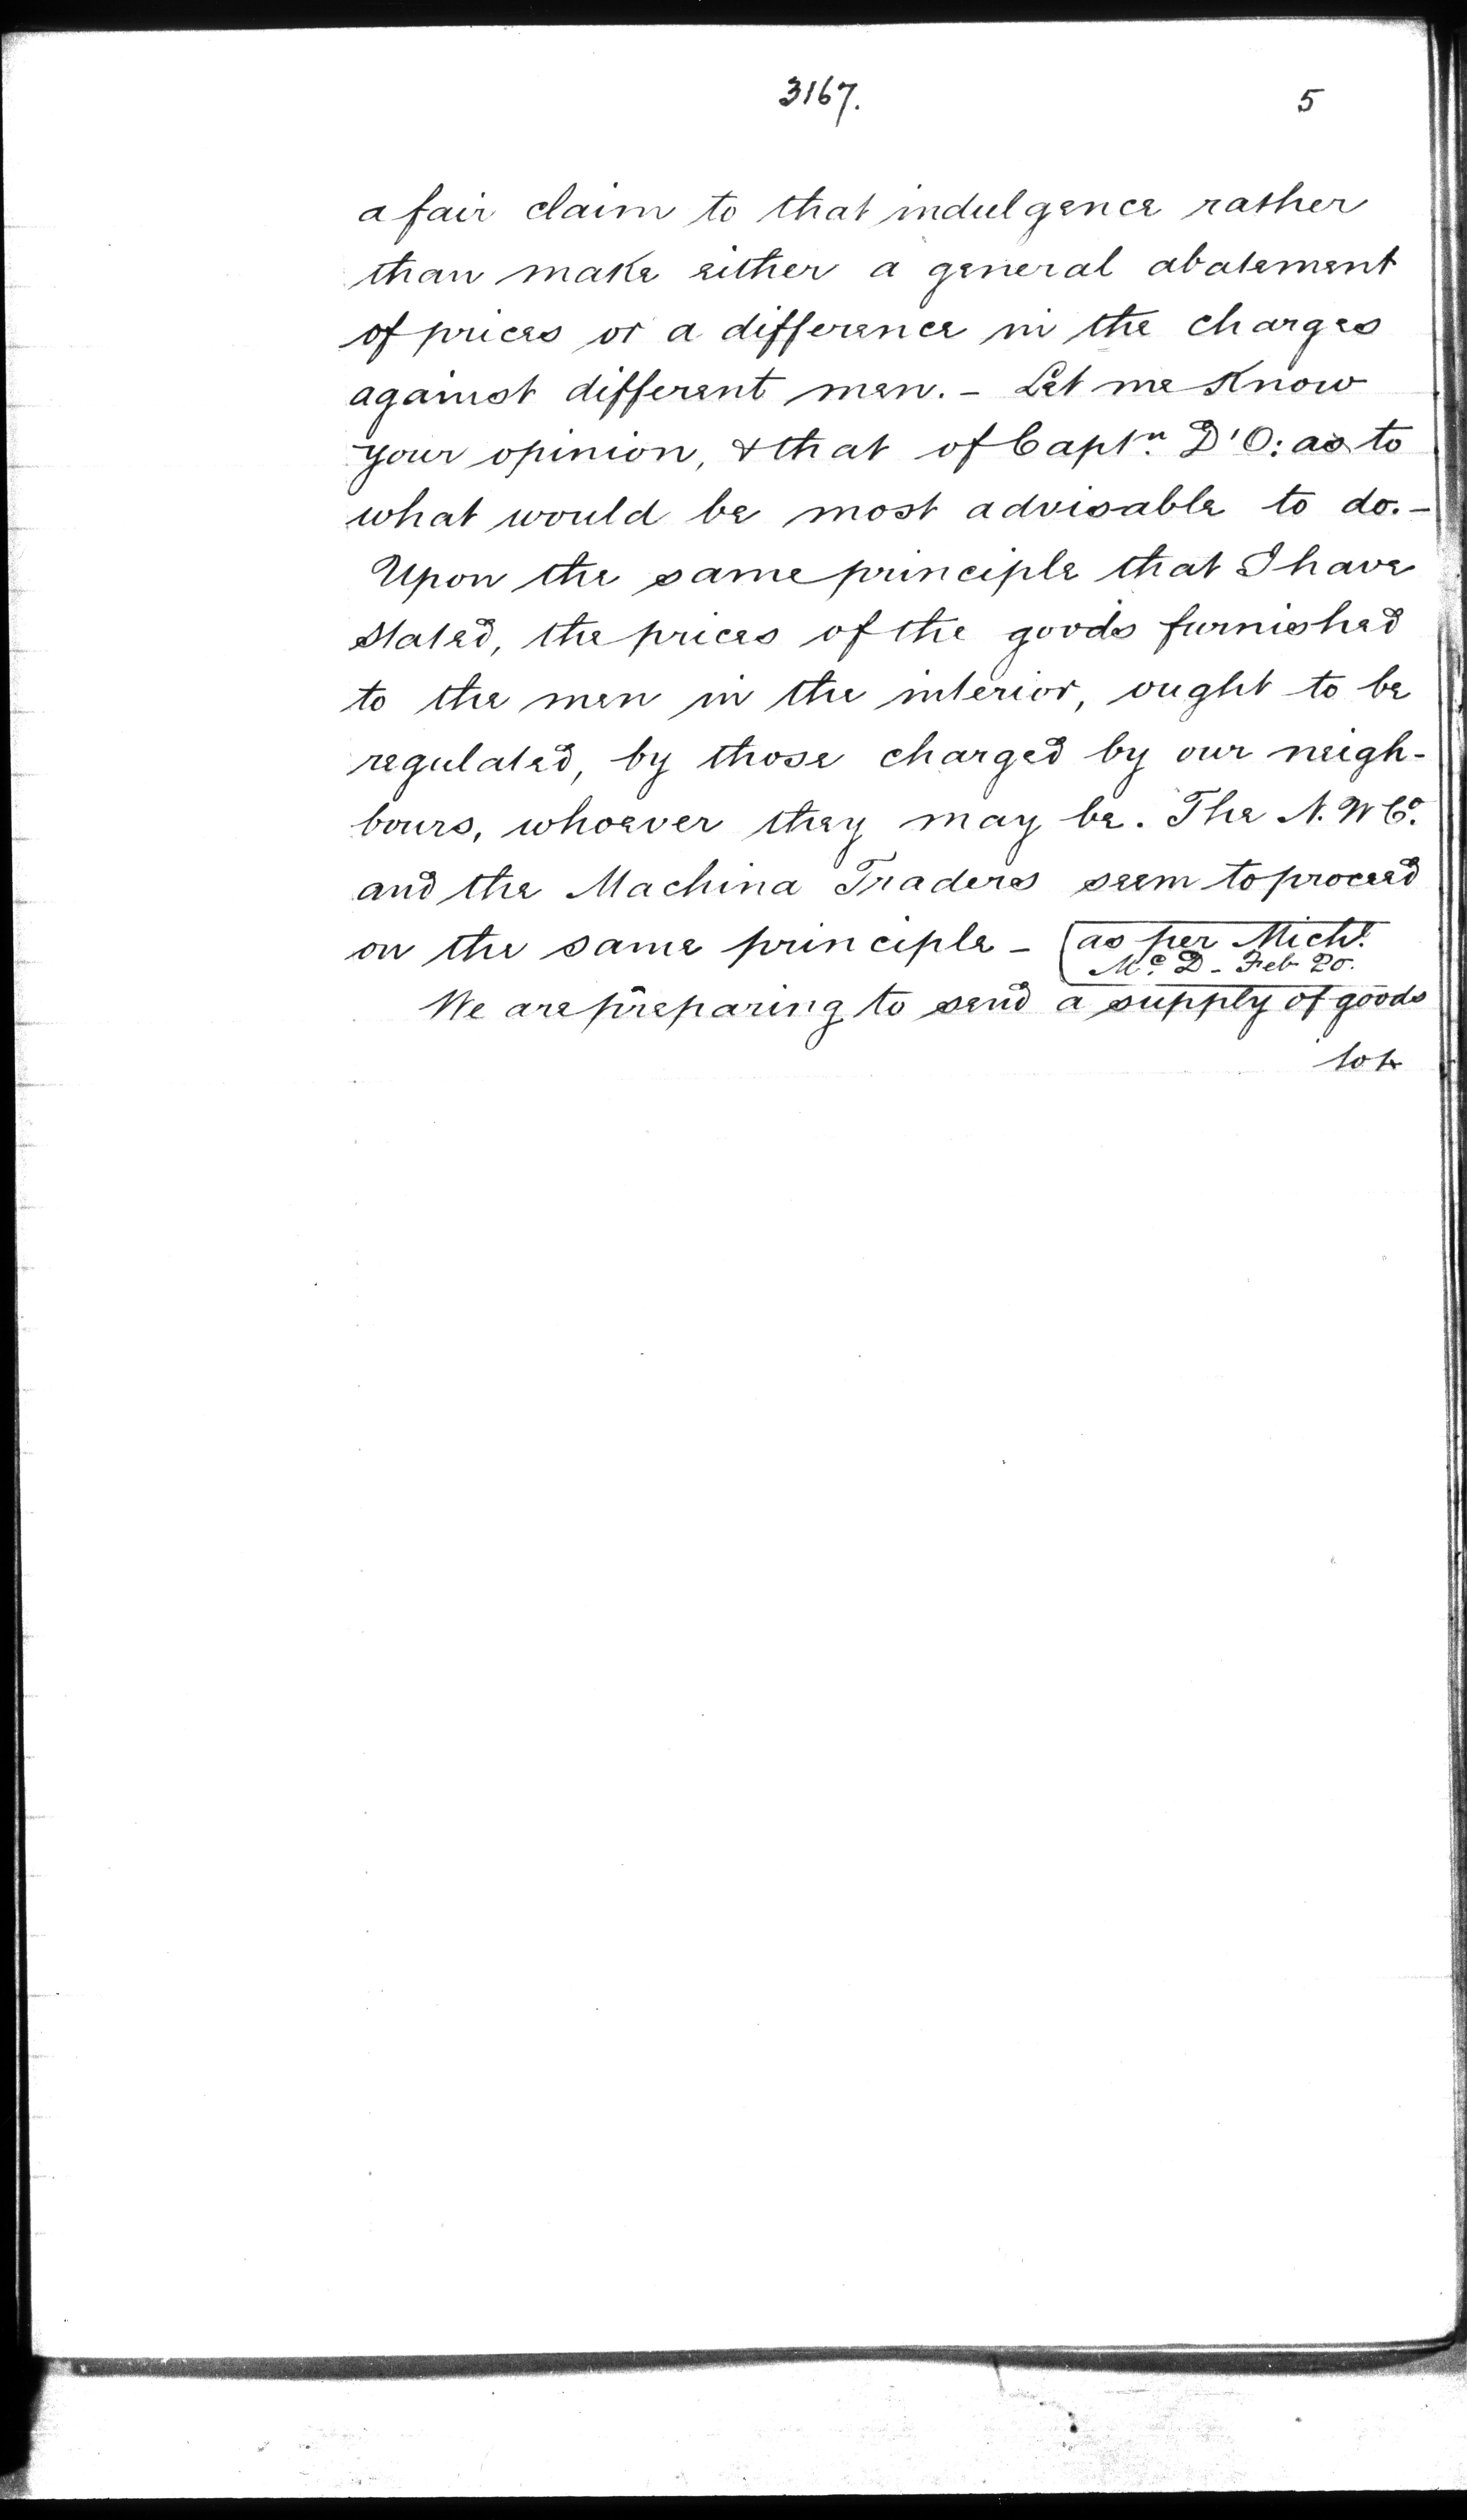 3167. 5
a fair claim to that indulgence rather
than make either a general abatement
of prices or a difference in the charges
against different men. - Let me know
your opinion, & that of Captn. D'O: as to
what would be most advisable to do. -
Upon the same principle that I have
stated, the prices of the goods furnished
to the men in the interior, ought to be
regulated, by those charged by our neigh-
bours, whoever they may be. The N. W Co.
and the Machina Traders seem to proceed
on the same principle - (as per Michl.
Mc. D - Feb 20.
We are preparing to send a supply of goods